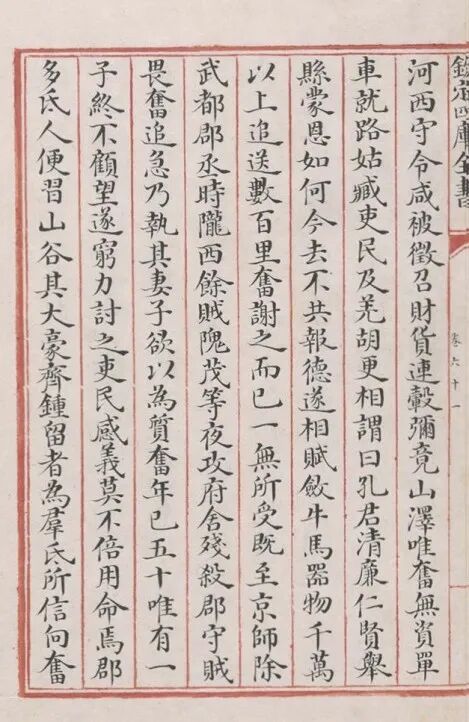 欽定四庫全書
卷六十一
河西守令咸被徵召財貨連轂彌竟山澤唯奮無資單
車就路姑臧吏民及羌胡更相謂曰孔君清廉仁賢舉
縣蒙恩如何今去不共報德遂相賦斂牛馬器物千萬
以上追送數百里奮謝之而已一無所受既至京師除
武都郡丞時隴西餘賊隗茂等夜攻府舍殘殺郡守賊
畏奮追急乃執其妻子欲以為質奮年已五十唯有一
子終不顧望遂窮力討之吏民感義莫不倍用命焉郡
多氐人便習山谷其大豪齊鍾留者為羣氐所信向奮